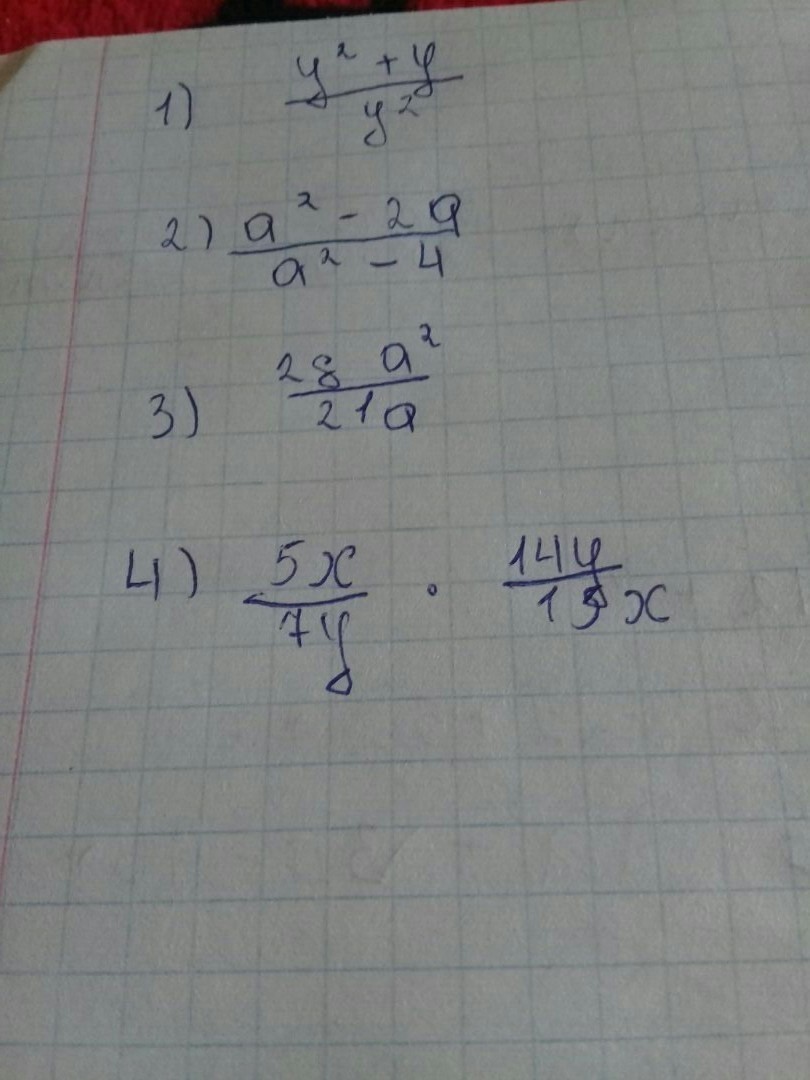 1) y² + y / y²
2) a² - 2a / a² - 4
3) 28 a² / 21a
4) 5x / 7y · 14y / 15x